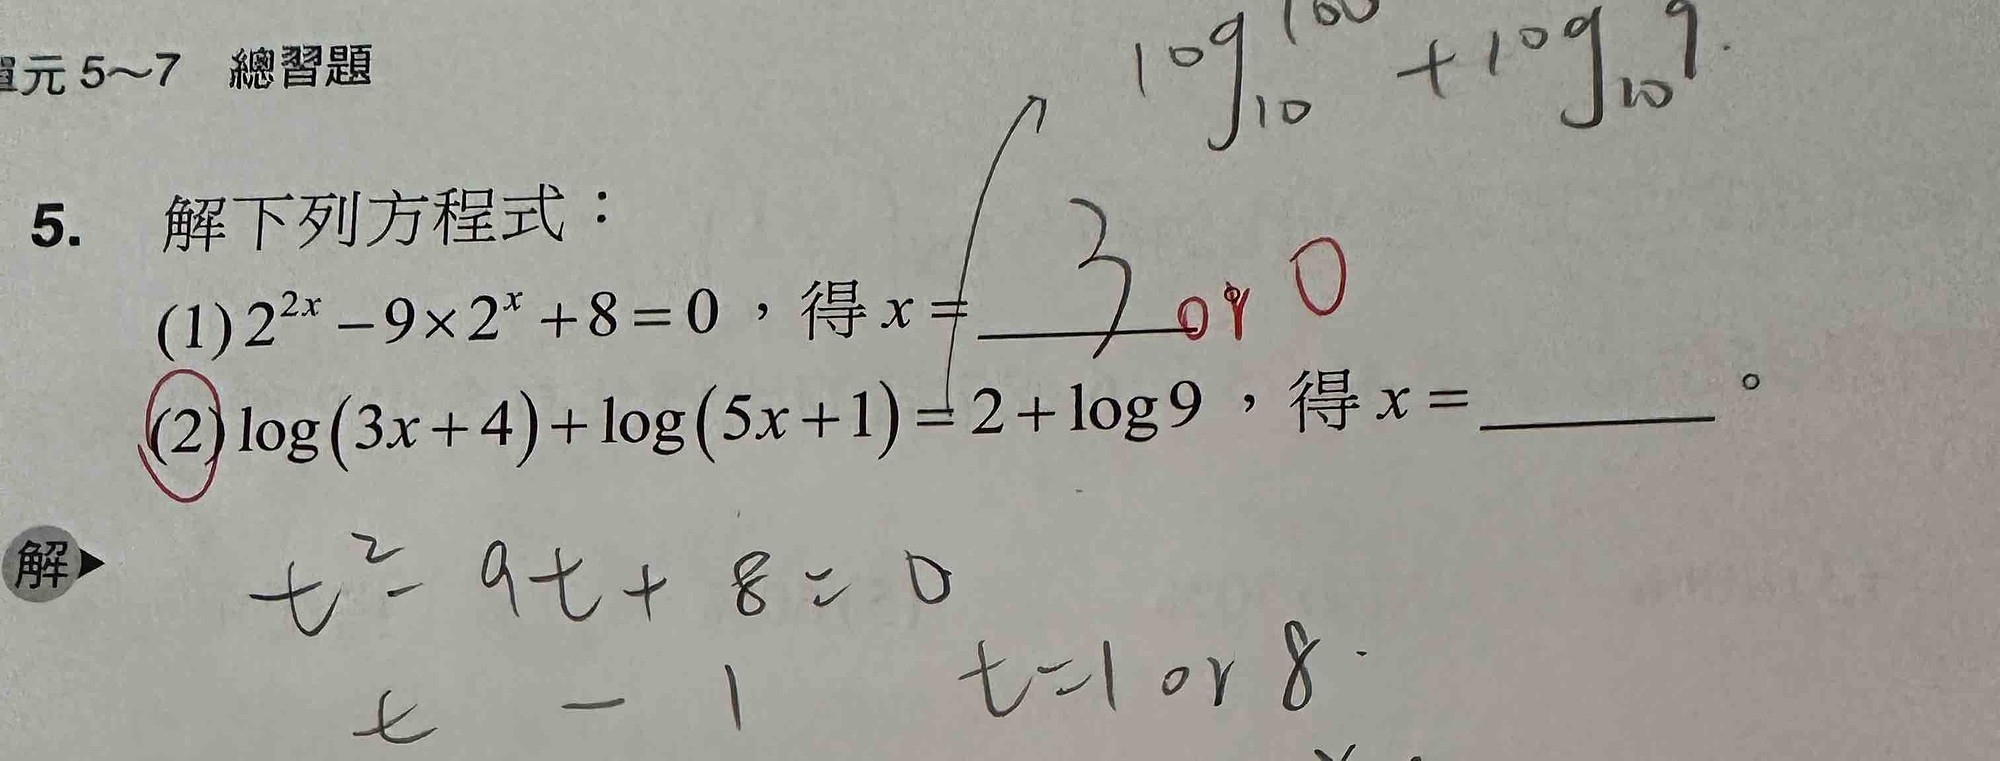 單元 5～7 總習題
log₁₀¹⁰⁰ + log₁₀9.
5. 解下列方程式：
(1) 2²ˣ − 9×2ˣ + 8 = 0，得 x = 3 or 0
(2) log(3x+4) + log(5x+1) = 2 + log9，得 x = ______。
解 t² − 9t + 8 = 0
t − 1 t = 1 or 8.